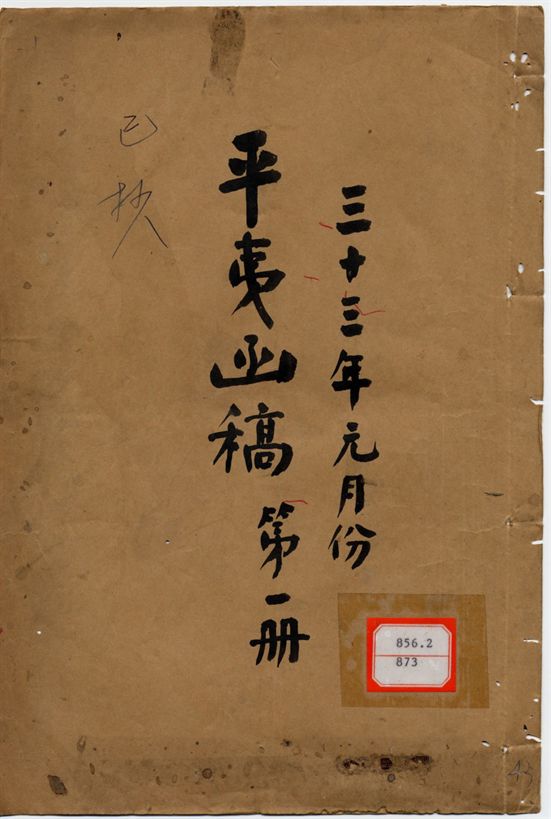 三十三年元月份
平夷函稿 第一册
已抄
856.2
873